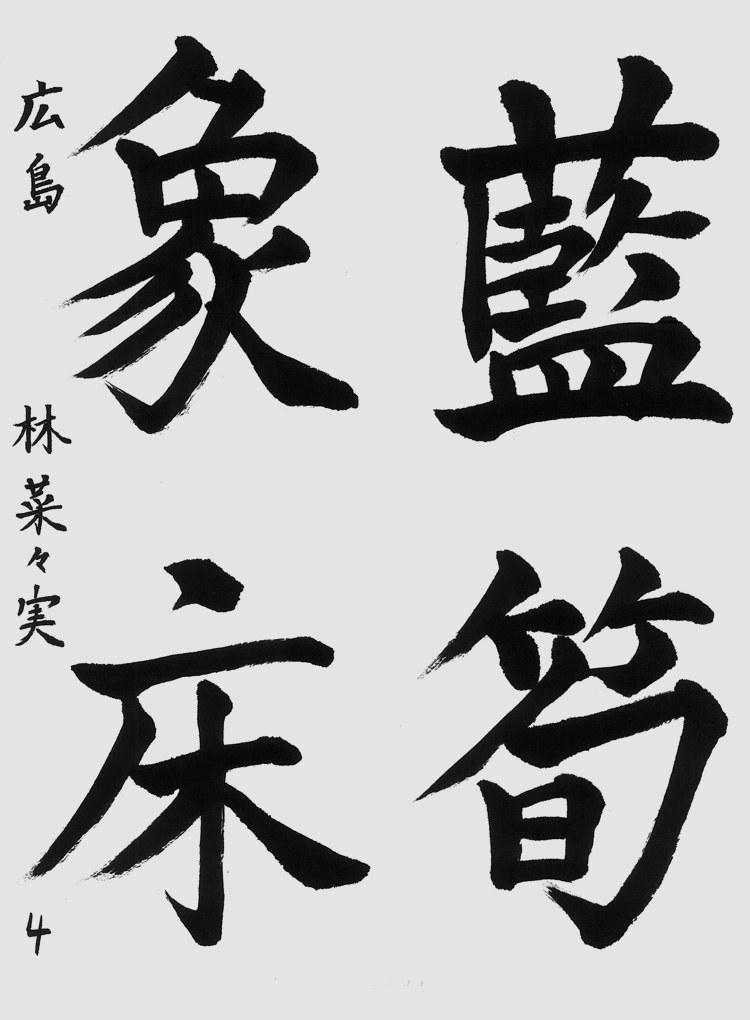 藍筍
象床
広島 林菜々実 4